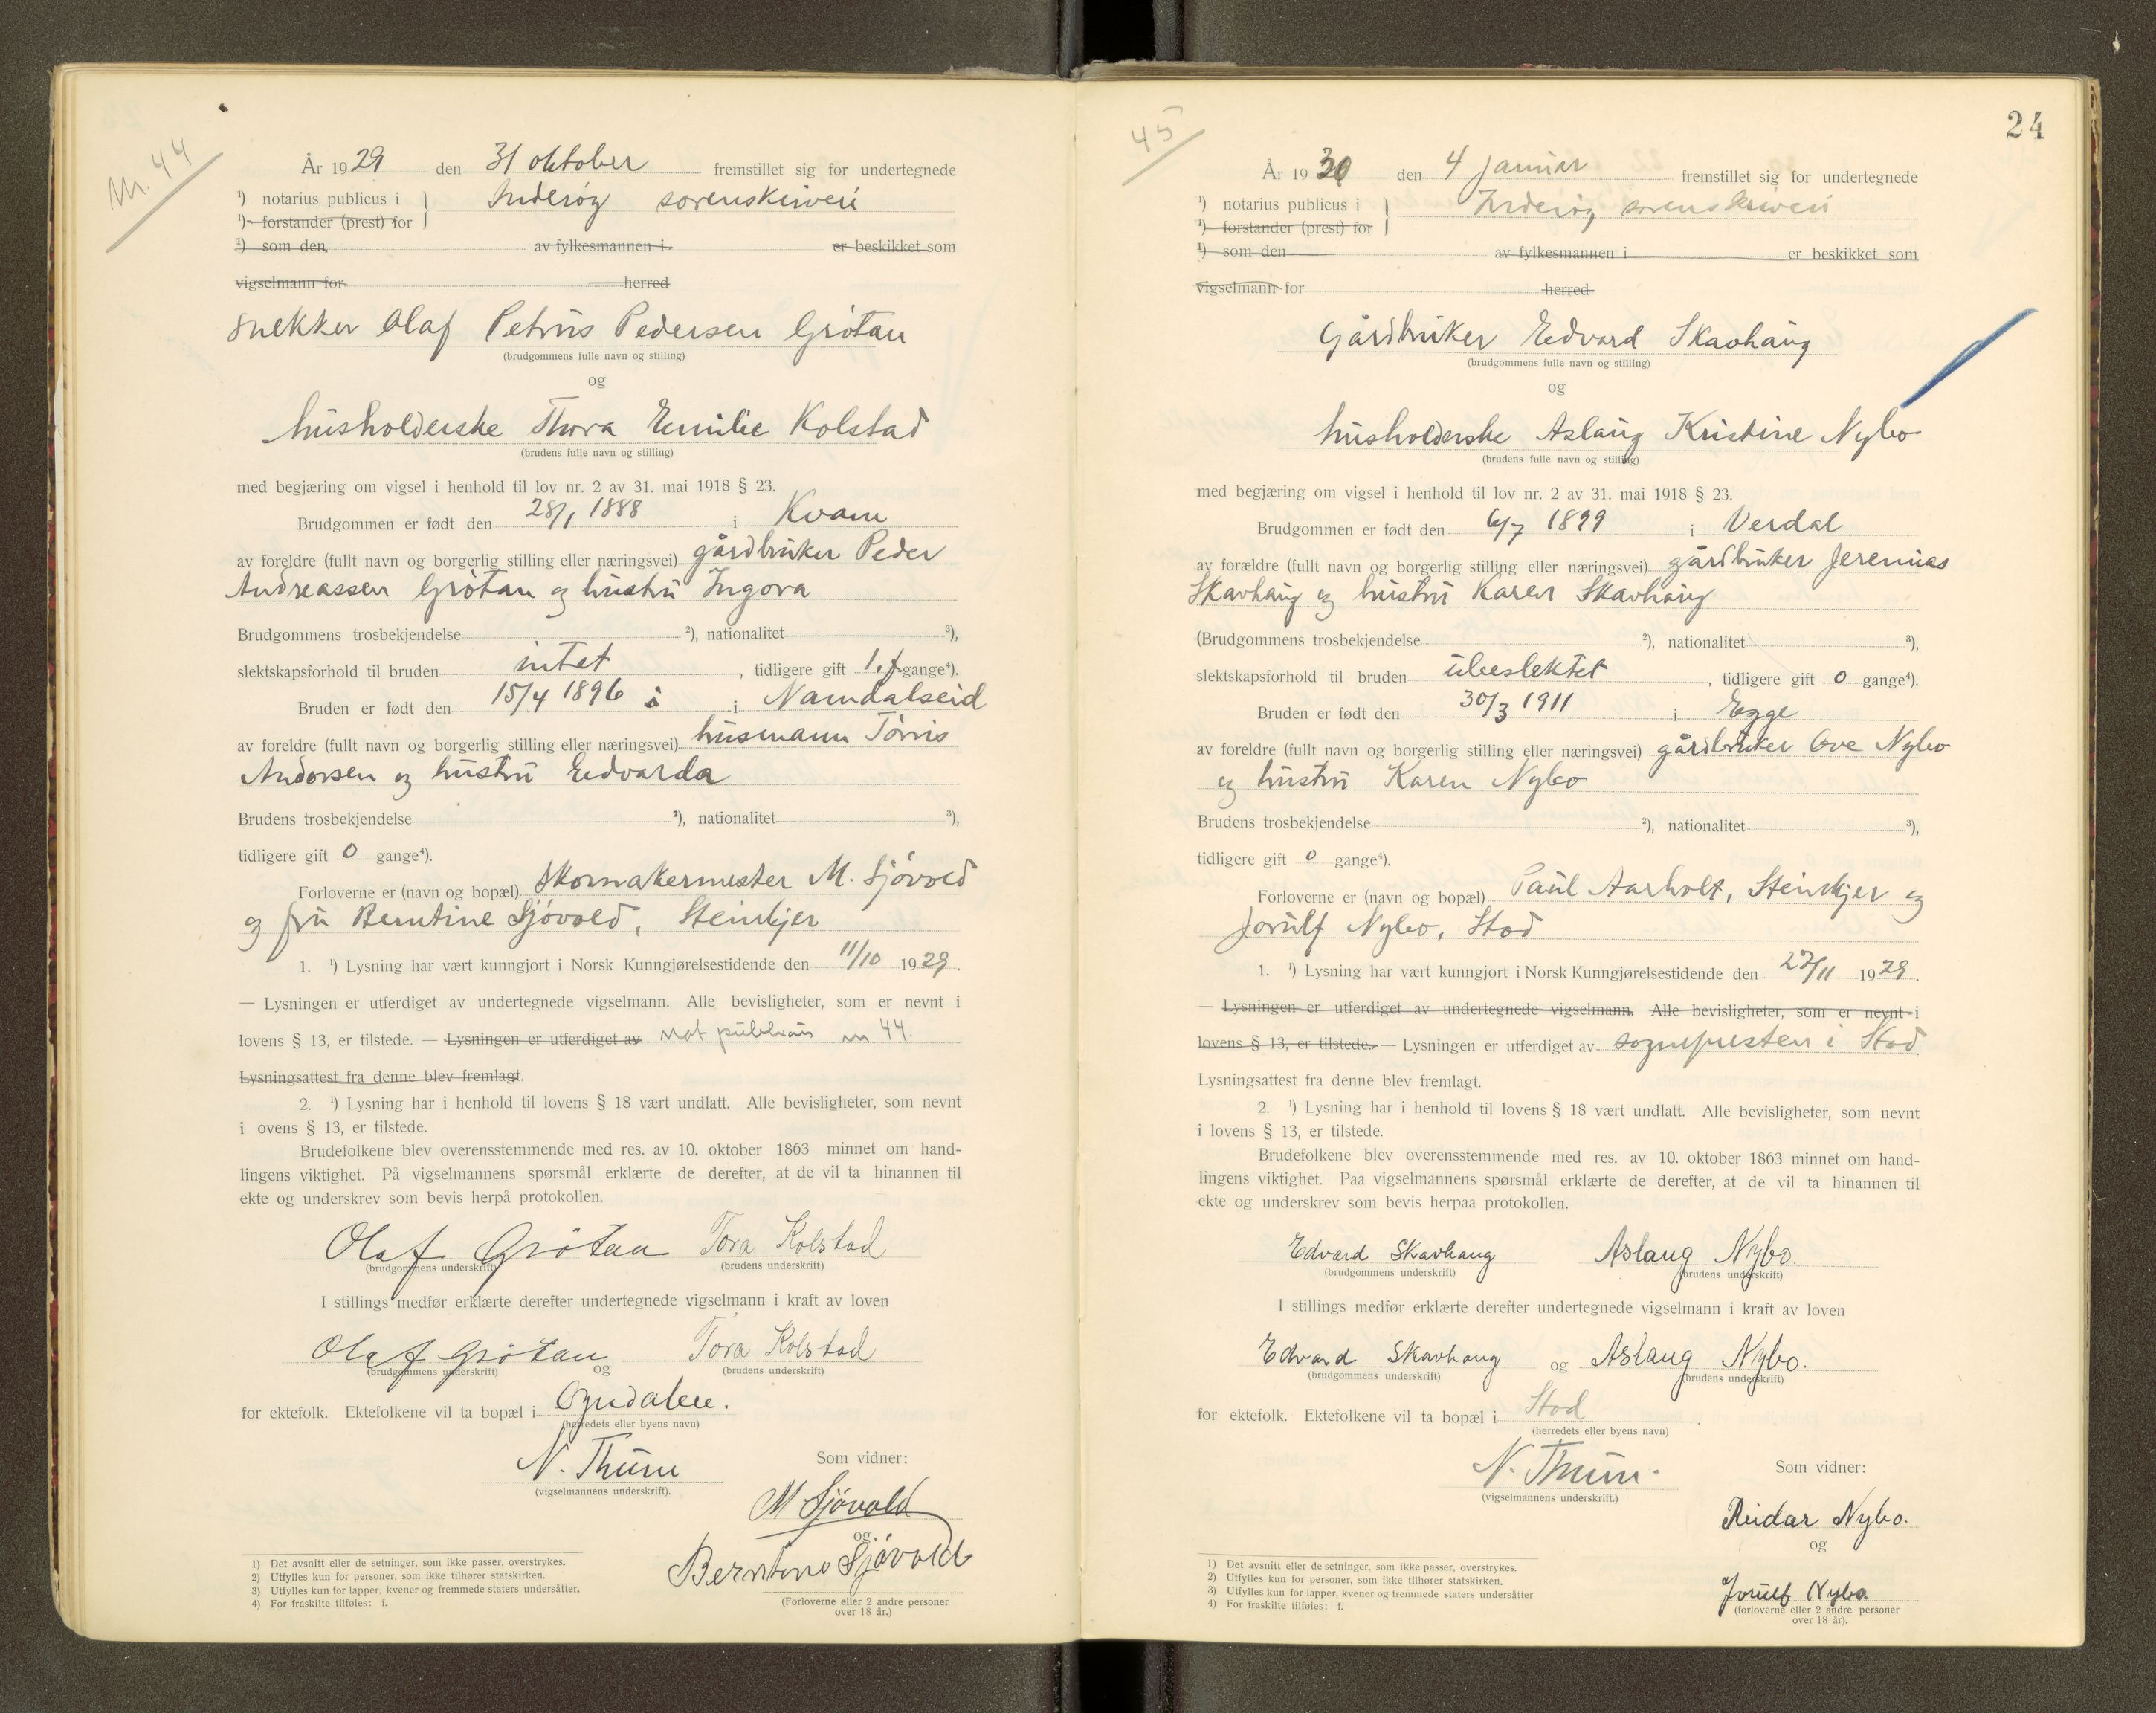 Nr. 44
År 1929 den 31 oktober fremstillet sig for undertegnede
¹) notarius publicus i Inderøy sorenskriveri
¹) forstander (prest) for
¹) som den av fylkesmannen i er beskikket som
vigselmann for herred
snekker Olaf Petrus Pedersen Grøtan
(brudgommens fulle navn og stilling)
og
husholderske Thora Emilie Kolstad
(brudens fulle navn og stilling)
med begjæring om vigsel i henhold til lov nr. 2 av 31. mai 1918 § 23.
Brudgommen er født den 28/1 1888 i Kvam
av foreldre (fullt navn og borgerlig stilling eller næringsvei) gårdbruker Peder
Andreassen Grøtan og hustru Ingora
Brudgommens trosbekjendelse ²), nationalitet ³),
slektskapsforhold til bruden intet, tidligere gift 1. f. gange⁴).
Bruden er født den 15/4 1896 i Namdalseid
av foreldre (fullt navn og borgerlig stilling eller næringsvei) husmann Tørris
Andorsen og hustru Edvarda
Brudens trosbekjendelse ²), nationalitet ³),
tidligere gift 0 gange⁴).
Forloverne er (navn og bopæl) skomakermester M. Sjøvold
og fru Berntine Sjøvold, Steinkjer
1. ¹) Lysning har vært kunngjort i Norsk Kunngjørelsestidende den 11/10 1929.
— Lysningen er utferdiget av undertegnede vigselmann. Alle bevisligheter, som er nevnt i
lovens § 13, er tilstede. — Lysningen er utferdiget av not publicus nr 44.
Lysningsattest fra denne blev fremlagt.
2. ¹) Lysning har i henhold til lovens § 18 vært undlatt. Alle bevisligheter, som nevnt
i ovens § 13, er tilstede.
Brudefolkene blev overensstemmende med res. av 10. oktober 1863 minnet om hand-
lingens viktighet. På vigselmannens spørsmål erklærte de derefter, at de vil ta hinannen til
ekte og underskrev som bevis herpå protokollen.
Olaf Grötan Tora Kolstad
(brudgommens underskrift) (brudens underskrift)
I stillings medfør erklærte derefter undertegnede vigselmann i kraft av loven
Olaf Grötan og Tora Kolstad
(brudgommens underskrift) (brudens underskrift)
for ektefolk. Ektefolkene vil ta bopæl i Ogndalen.
(herredets eller byens navn)
N. Thume
(vigselmannens underskrift).
Som vidner:
M Sjövold
og
Berntine Sjövold
(Forloverne eller 2 andre personer
over 18 år.)
1) Det avsnitt eller de setninger, som ikke passer, overstrykes.
2) Utfylles kun for personer, som ikke tilhører statskirken.
3) Utfylles kun for lapper, kvener og fremmede staters undersåtter.
4) For fraskilte tilføies: f.
45
24
År 1930 den 4 januar fremstillet sig for undertegnede
¹) notarius publicus i Inderøy sorenskriveri
¹) forstander (prest) for
¹) som den av fylkesmannen i er beskikket som
vigselmann for herred
Gårdbruker Edvard Skavhaug
(brudgommens fulle navn og stilling)
og
husholderske Aslaug Kristine Nybo
(brudens fulle navn og stilling)
med begjæring om vigsel i henhold til lov nr. 2 av 31. mai 1918 § 23.
Brudgommen er født den 6/7 1899 i Verdal
av forældre (fullt navn og borgerlig stilling eller næringsvei) gårdbruker Jeremias
Skavhaug og hustru Karen Skavhaug
(Brudgommens trosbekjendelse ²), nationalitet ³),
slektskapsforhold til bruden ubeslektet, tidligere gift 0 gange⁴).
Bruden er født den 30/3 1911 i Egge
av foreldre (fullt navn og borgerlig stilling eller næringsvei) gårdbruker Ove Nybo
og hustru Karen Nybo
Brudens trosbekjendelse ²), nationalitet ³),
tidligere gift 0 gange⁴).
Forloverne er (navn og bopæl) Paul Aarholt, Steinkjer og
Jorulf Nybo, Stod
1. ¹) Lysning har vært kunngjort i Norsk Kunngjørelsestidende den 27/11 1929.
— Lysningen er utferdiget av undertegnede vigselmann. Alle bevisligheter, som er nevnt i
lovens § 13, er tilstede. — Lysningen er utferdiget av sognepresten i Stod.
Lysningsattest fra denne blev fremlagt.
2. ¹) Lysning har i henhold til lovens § 18 vært undlatt. Alle bevisligheter, som nevnt
i lovens § 13, er tilstede.
Brudefolkene blev overensstemmende med res. av 10. oktober 1863 minnet om hand-
lingens viktighet. Paa vigselmannens spørsmål erklærte de derefter, at de vil ta hinannen til
ekte og underskrev som bevis herpaa protokollen.
Edvard Skavhaug Aslaug Nybo.
(brudgommens underskrift) (brudens underskrift)
I stillings medfør erklærte derefter undertegnede vigselmann i kraft av loven
Edvard Skavhaug og Aslaug Nybo.
(brudgommens underskrift) (brudens underskrift)
for ektefolk. Ektefolkene vil ta bopæl i Stod.
(herredets eller byens navn)
N. Thume.
(vigselmannens underskrift.)
Som vidner:
Reidar Nybo.
og
Jorulf Nybo.
(forloverne eller 2 andre personer
over 18 år).
1) Det avsnitt eller de setninger, som ikke passer, overstrykes.
2) Utfylles kun for personer, som ikke tilhører statskirken.
3) Utfylles kun for lapper, kvener og fremmede staters undersåtter
4) For fraskilte tilføies: f.